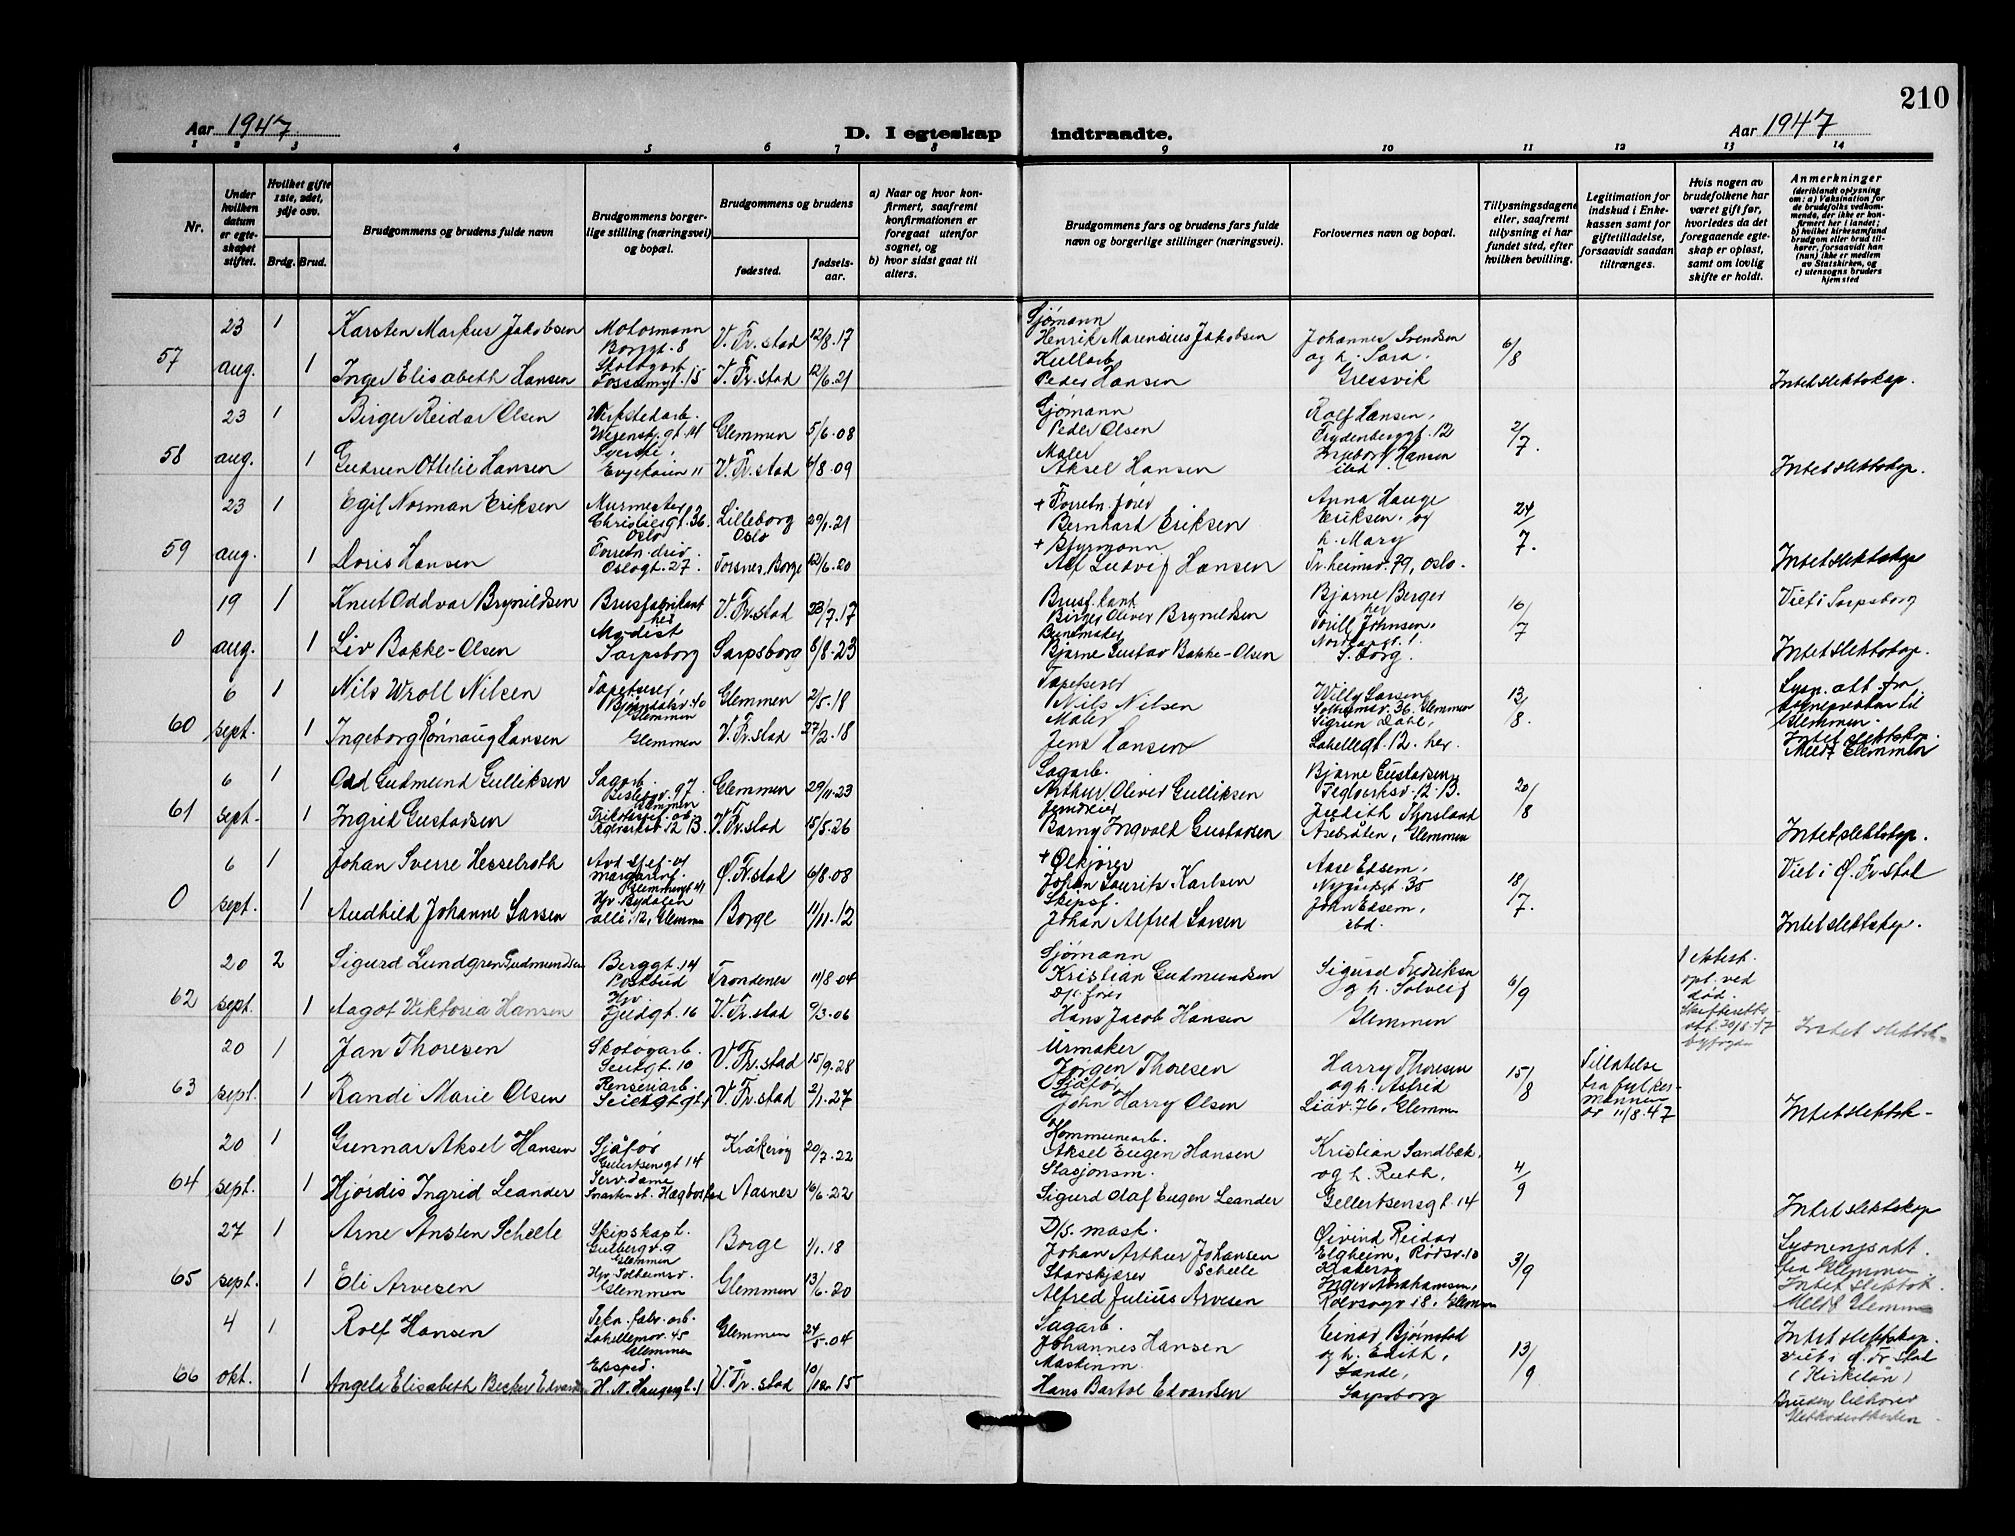 210
Aar 1947
D. I egteskap
indtraadte.
Aar 1947
1 2 3 4 5 6 7 8 9 10 11 12 13 14
Nr.
Under hvilken datum er egteskapet stiftet.
Hvilket gifte 1ste, 2det, 3dje osv.
Brdg. Brud.
Brudgommens og brudens fulde navn
Brudgommens borgerlige stilling (næringsvei) og bopæl.
Brudgommens og brudens
fødested. fødselsaar.
a) Naar og hvor konfirmert, saafremt konfirmationen er foregaat utenfor sognet, og
b) hvor sidst gaat til alters.
Brudgommens fars og brudens fars fulde navn og borgerlige stillinger (næringsvei).
Forlovernes navn og bopæl.
Tillysningsdagene eller, saafremt tillysning ei har fundet sted, efter hvilken bevilling.
Legitimation for indskud i Enkekassen samt for giftetilladelse, forsaavidt saadan tiltrænges.
Hvis nogen av brudefolkene har været gift før, hvorledes da det foregaaende egteskap er opløst, samt om lovlig skifte er holdt.
Anmerkninger (deriblandt oplysning om: a) Vaksination for de brudefolks vedkommende, der ikke er konfirmert her i landet; b) hvilket kirkesamfund brudgom eller brud tilhører, forsaavidt han (hun) ikke er medlem av Statskirken, og c) utensogns bruders hjemsted
57
23 aug. 1 Karsten Markus Jakobsen Motormann Borggt. 8 V. Fr.stad 12/8.17 Sjømann Henrik Marensius Jakobsen Johannes Svendsen og h. Sara. Gressvik 6/8
1 Inger Elisabeth Hansen Skotøyarb. 15 V. Fr.stad 12/6.21 Peder Hansen Intet slektskap.
58
23 aug. 1 Birger Reidar Olsen Verkstedarb. 14 Glemmen 5/6.08 Sjømann Peder Olsen Rolf Hansen, Frydenberggt. 12 Ingeborg Hansen ibd 2/7.
1 Gudrun Ottilie Hansen 11 V. Fr.stad 6/8.09 Maler Aksel Hansen Intet slektskap.
59
23 aug. 1 Egil Norman Eriksen Murmester Christiesgt. 36. Oslo Lilleborg Oslo 29/1.21 + Forretn.fører Bernhard Eriksen Anna Hauge Eriksen og h. Mary Tr.heimsv. 79, Oslo. 24/7.
1 Doris Hansen Forretn.driv. Oslogt. 27. Torsnes, Borge 12/6.20 + Styrmann Alf Ludvig Hansen Intet slektskap
0
19 aug. 1 Knut Oddvar Brynildsen Brusfabrikant her V. Fr.stad 23/7.17 Brusf.kant Birger Oliver Brynildsen Bjarne Berger her Torill Johnsen, S.borg. 16/7 Viet i Sarpsborg
1 Liv Bakke-Olsen Modist Sarpsborg Sarpsborg 8/8.23 Buntmaker Bjarne Gustav Bakke-Olsen Intet slektskap.
60
6 sept. 1 Nils Wroll Nilsen Tapetserer, 40 Glemmen Glemmen 2/5.18 Tapetserer Nils Nilsen Willy Larsen 36. Glemmen Sigrun Dahl, Lahellegt. 12. her. 13/8. Lysn. att. fra sogneprestan til Glemmen.
1 Ingeborg Rønnaug Hansen Glemmen V. Fr.stad 27/2.18 Maler Jens Hansen Intet slektskap. Meldt Glemmen
61
6 sept. 1 Odd Gudmund Gulliksen Sagarb. 97 Glemmen Glemmen 29/11.23 Sagarb. Arthur Oliver Gulliksen Bjarne Gustavsen Teglverksv. 12 B. Judith Thorsland Glemmen 20/8
1 Ingrid Gustavsen Teglverksv. 12 B. V. Fr.stad 15/5.26 Barny Ingvald Gustavsen Intet slektskap.
0
6 sept. 1 Johan Sverre Hesselroth Glemmengt 41 Ø. Fr.stad 6/8.08 + Ølkjører Johan Laurits Karlsen Aase Edsem, Nygårdgt. 35 John Edsem, ibd. 18/7. Viet i Ø. Fr.stad
1 Audhild Johanne Larsen Hjv. Bydalen alle. 12, Glemmen Borge 11/11.12 Skipsf. Johan Alfred Larsen Intet slektskap.
62
20 sept. 2 Sigurd Lundgren Gudmundsen Berggt. 14 Postbud Trondenes 11/8.04 Sjømann Kristian Gudmundsen Sigurd Fredriksen og h. Solveig Glemmen 6/9 1 ektesk. opl. ved død. Skifteretts- att. 20/8.47
1 Aagot Viktoria Hansen Hjv. Fjeldgt. 16 V. Fr.stad 9/3.06 Hans Jacob Hansen Intet slektsk-
63
20 sept. 1 Jan Thoresen Skotøyarb. 10 V. Fr.stad 15/9.28 Urmaker Jørgen Thoresen Harry Thoresen og h. Astrid Liav. 76, Glemmen 15/8 Tillatelse fra fylkesmannen av 11/8.47
1 Randi Marie Olsen Renseriarb. V. Fr.stad 2/1.27 Sjåfør John Harry Olsen Intet slektsk-
64
20 sept. 1 Gunnar Aksel Hansen Sjåfør Gellertsengt 14 Kråkerøy 20/7.22 Kommunearb. Aksel Eugen Hansen Kristian Sandbæk, og h. Ruth, Gellertsensgt. 14 4/9
1 Hjørdis Ingrid Leander Serv.dame Aasnes 16/6.22 Stasjonsm. Sigurd Olaf Eugen Leander Intet slektskap
65
27 sept. 1 Arne Ansten Schelle Skipskapt. Gulbergv. 9 Glemmen Borge 1/1.18 D/s. mask. Johan Arthur Johansen Schelle Øivind Reidar Elgheim, Rødsv. 10 Kråkerøy Inger Abrahamsen, Rolvsøyv 18. Glemmen 3/9 Lysningsatt. fra Glemmen
1 Eli Arvesen Hjv Solheimsv. Glemmen Glemmen 13/6.20 Alfred Julius Arvesen Intet slektsk. Meldt Glemmen
66
4 okt. 1 Rolf Hansen Tekn. fabr. arb. Lahellemov. 45 Glemmen Glemmen 24/5.04 Sagarb. Johannes Hansen Einar Bjørnstad og h. Edith, Sande, Sarpsborg 13/9 Intet slektskap. Viet i Ø. Fr.stad
1 Angela Elisabeth Becker Edvardsen Eksped. H. N. Haugesgt. 1 V. Fr.stad 10/12.15 Hans Bartol Edvardsen Bruden tilhører Metodistkirken